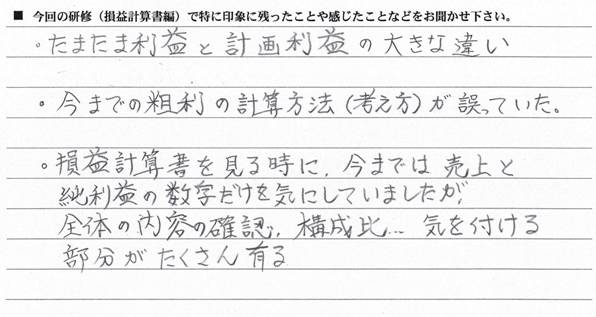 ■ 今回の研修（損益計算書編）で特に印象に残ったことや感じたことなどをお聞かせ下さい。
・たまたま利益と計画利益の大きな違い
・今までの粗利の計算方法(考え方)が誤っていた。
・損益計算書を見る時に、今までは売上と
純利益の数字だけを気にしていましたが、
全体の内容の確認、構成比… 気を付ける
部分がたくさん有る